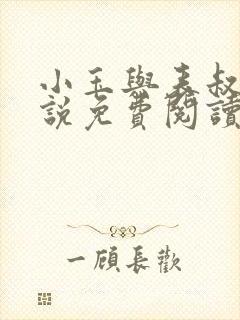 小玉與表叔
說免費閱讀
一顧長歡